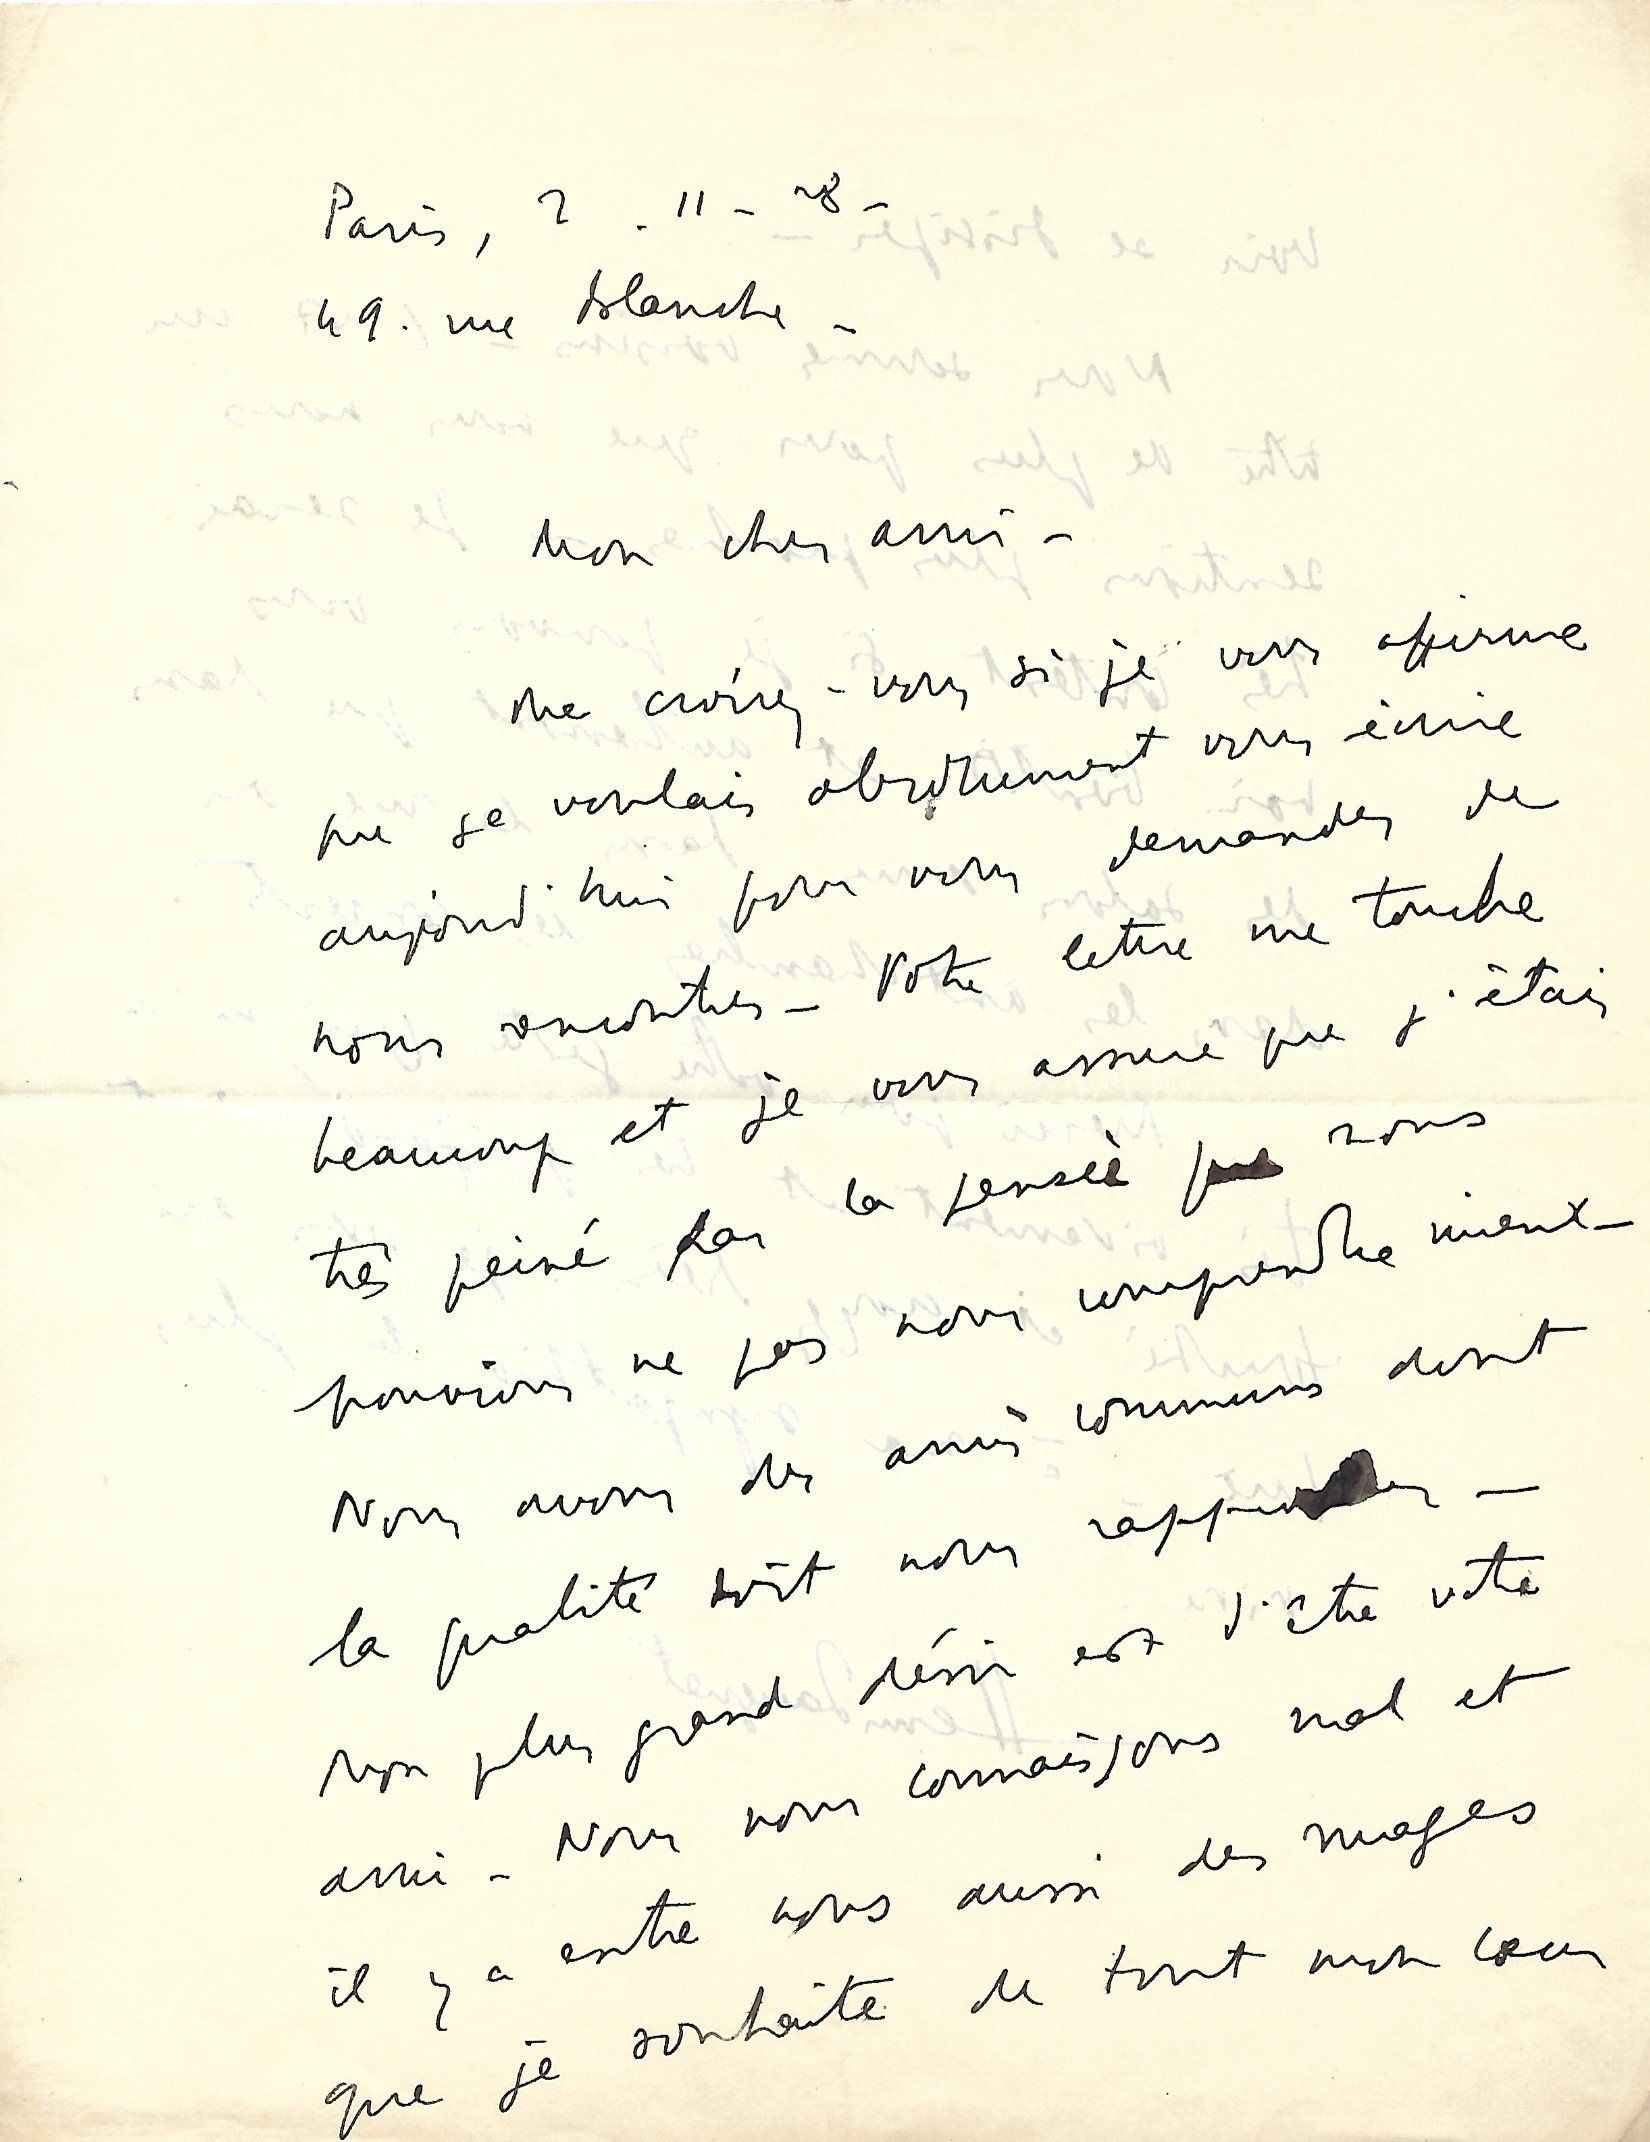 Paris, 2 . 11 - 28 -
49. rue Blanche -
Mon cher ami -
Me croirez-vous si je vous affirme
que je voulais absolument vous écrire
aujourd'hui pour vous demander de
nous rencontrer - Votre lettre me touche
beaucoup et je vous assure que j'étais
très peiné par la pensée que nous
pouvions ne pas nous comprendre mieux -
Nous avons des amis communs dont
la qualité doit nous rapprocher -
Mon plus grand désir est d'être votre
ami - Nous nous connaissons mal et
il y a entre nous aussi des nuages
que je souhaite de tout mon coeur